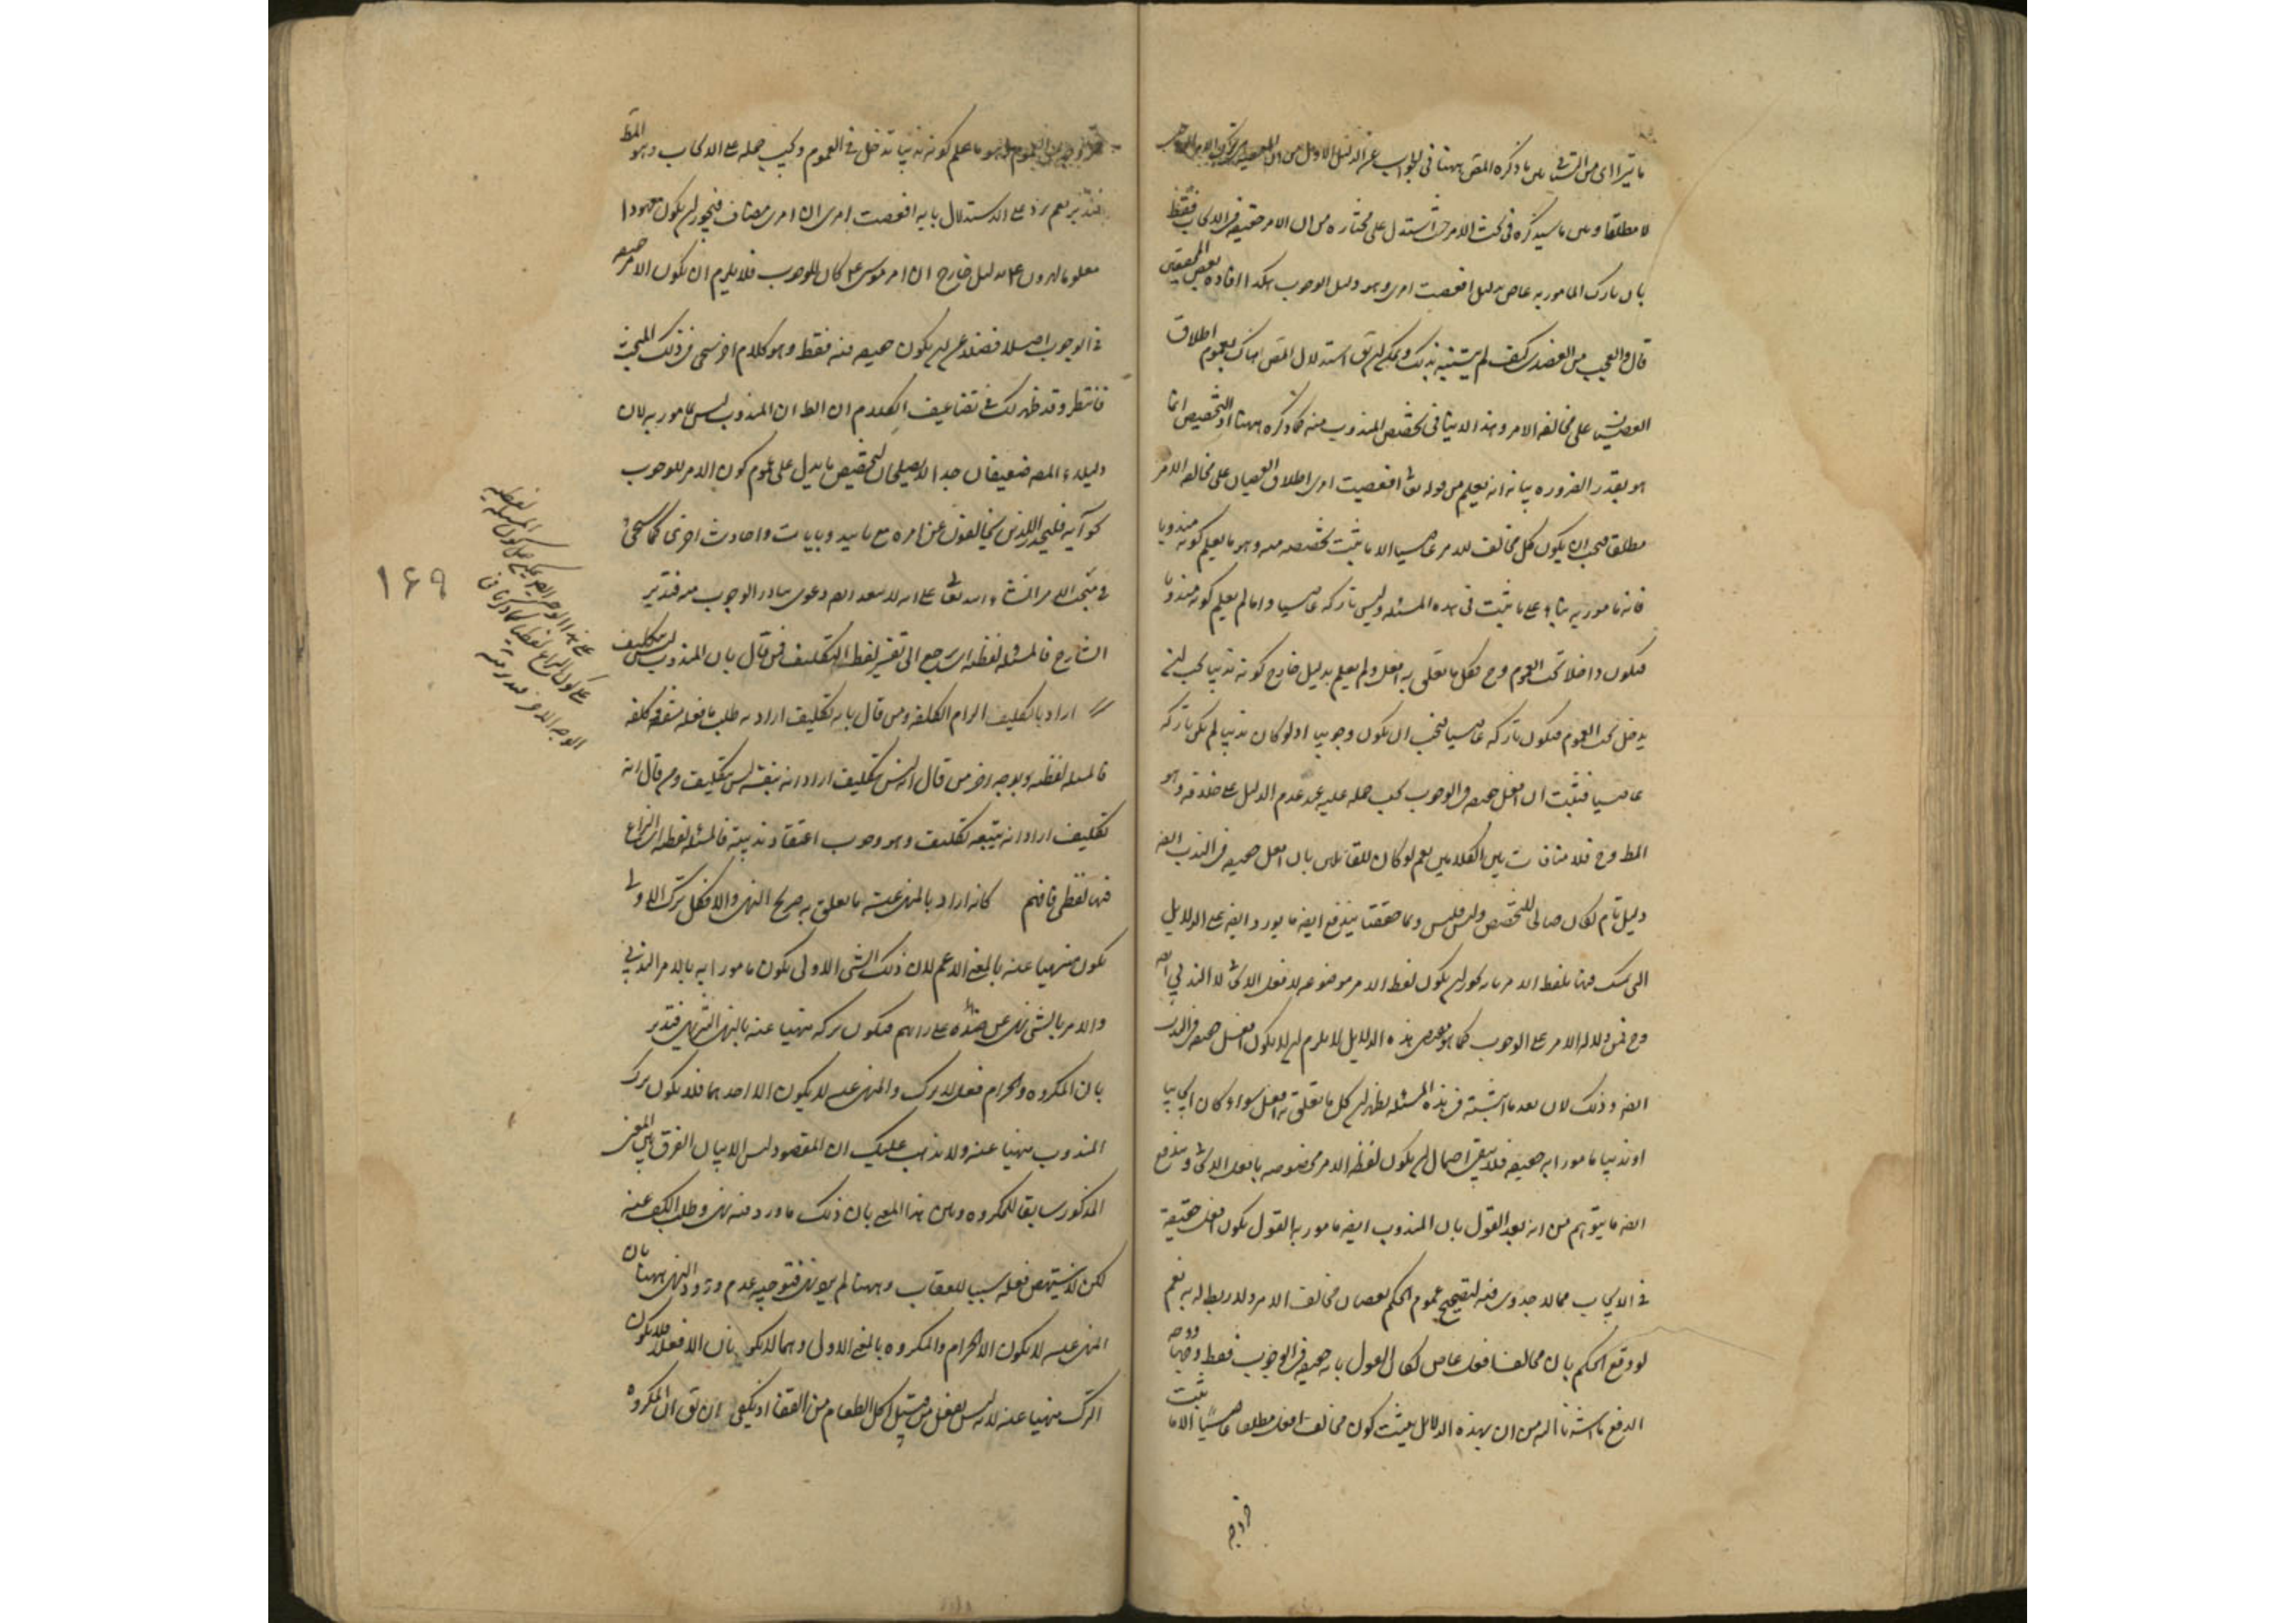 ما يترااى من التنافى بين ما ذكره المص ههنا فى الجواب عن الدليل الاول من ان
لا مطلقا وبين ما سيذكره فى بحث الامر حيث استدل على مختاره من ان الامر حقيقه فى الايجاب فقط
بان تارك المامور به عاص بدليل افعصيت امرى وهو دليل الوجوب هكذا افاده بعض المحققين
قال والعجب من العضدى كيف لم يتنبه بذلك ويمكن ان يق استدلال المص هناك بعموم اطلاق
العصيان على مخالفه الامر وهذا لا ينافى تخصيص المندوب منه كما ذكره ههنا اذ التخصيص انما
هو بقدر الضروره بيانه انه يعلم من قوله تعا افعصيت امرى اطلاق العصيان على مخالفه الامر
مطلقا فيجب ان يكون كل مخالف للامر عاصيا الا ما يثبت تخصيصه منه وهو ما يعلم كونه مندوبا
فانه مامور به بناء على ما ثبت فى هذه المسئله وليس تاركه عاصيا واما لم يعلم كونه مندوبا
فيكون داخلا تحت العموم وح فكل ما تعلق به افعل ولم يعلم بدليل خارج كونه ندبيا يجب ان
يدخل تحت العموم فيكون تاركه عاصيا فيجب ان يكون وجوبيا اذ لو كان ندبيا لم يكن تاركه
عاصيا فثبت ان افعل حقيقه فى الوجوب يجب حمله عليه عند عدم الدليل على خلافه وهو
المط وح فلا منافات بين الكلامين نعم لو كان للقائلين بان افعل حقيقه فى الندب ايضه
دليل تام لكان صالحا للتخصيص وليس فليس وبما حققنا يندفع ايضه ما يورد ايضه على الدلايل
التى تمسك فيها بلفظ الامر بانه يجوز ان يكون لفظ الامر موضوعه لافعل الايجابى لا الندبى
وح فمن دلاله الامر على الوجوب كما هو مقتضى هذه الدلايل لا يلزم ان لا يكون افعل حقيقه فى الندب
ايضه وذلك لان بعد ما اثبته فى هذه المسئله يظهر ان كل ما تعلق به افعل سواء كان ايجابيا
او ندبيا مامورا به حقيقه فلا يبقى احتمال ان يكون لفظه الامر مخصوصه بافعل الايجابى ويندفع
ايضه ما يتوهم من انه بعد القول بان المندوب ايضه مامور به القول بكون افعل حقيقة
فى الايجاب مما لا جدوى فيه لتصحيح عموم الحكم بعصيان مخالف الامر ولا ربط له به نعم
لو وقع الحكم بان مخالف افعل عاص لكان القول بانه حقيقه فى الوجوب فقط وجها ووجه
الدفع ما اشرنا اليه من ان بهذه الدلايل يثبت كون مخالف افعل مطلقا عاصيا الا ما ثبت
خروجه
خروجه من العموم وهو ما علم كونه ندبيا تدخل فى العموم ويجب حمله على الايجاب وهو المط
فتدبر نعم يرد على الاستدلال بايه افعصيت امرى ان امرى مضاف فيجوز ان يكون معهودا
معلوما لهرون ع بدليل خارج ان امر موسى ع كان للوجوب فلا يلزم ان يكون الامر حقيقه
فى الوجوب اصلا فضلا عن ان يكون حقيقه فيه فقط وهو كلام اخر سيجى فى ذلك المبحث
فانتظر وقد ظهر لك فى تضاعيف الكلام ان الظ ان المندوب ليس بمامور به لان
دليلاء المص ضعيفان جدا لا يصلحان لتخصيص ما يدل على عموم كون الامر للوجوب
كو آيه فليحذر الذين يخالفون عن امره مع تاييد وبايات واحاديث اخرى كما سيجئ
فى مبحث الامر انشاء الله تعالى على انه لا يبعد ايضه دعوى تبادر الوجوب منه فتدبر
الشارح فالمسئله لفظيه اى يرجع الى تفسير لفظ التكليف فمن قال بان المندوب ليس بتكليف
اراد بالتكليف الزام الكلفه ومن قال بانه تكليف اراد به طلب ما فعله مشقه وكلفه
فالمسئله لفظيه وبوجه اخر من قال انه ليس بتكليف اراد انه بنفسه ليس بتكليف ومن قال انه
تكليف اراد انه يتبعه تكليف وهو وجوب اعتقاد ندبيته فالمسئله لفظيه اى النزاع
فيها لفظى فافهم كانه اراد بالمنهى عنه ما تعلق به صريح النهى والا فكل ترك الاولى
يكون منهيا عنه بالمعنى الاعم لان ذلك الشى الاولى يكون مامورا به بالامر الندبى
والامر بالشى نهى عن ضده على رايهم فيكون تركه منهيا عنه بالنهى التنزيهى فتدبر
بان المكروه والحرام فعل لا ترك والمنهى عنه لا يكون الا احدهما فلا يكون ترك
المندوب منهيا عنه ولا يذهب عليك ان المقصود ليس الا بيان الفرق بين المعنى
المذكور سابقا للمكروه وبين هذا المعنى بان ذلك ما ورد فيه نهى وطلب الكف عنه
لكن لا ينتهض فعله سببا للعقاب وههنا لم يرد نهى فتوجيه عدم ورود النهى ههنا بان
المنهى عنه لا يكون الا الحرام والمكروه بالمعنى الاول وهما لا يكونان الا فعلا فلا يكون
الترك منهيا عنه لانه ليس بفعل من قبيل اكل الطعام من القفا اذ يكفى ان يق ان المكروه
١٦٩
على هذا الوجه الاخير يمكن كون المسئله لفظيه
على كون النزاع لفظيا كما ذكرنا فى
الوجه الاخر فتدبر منه